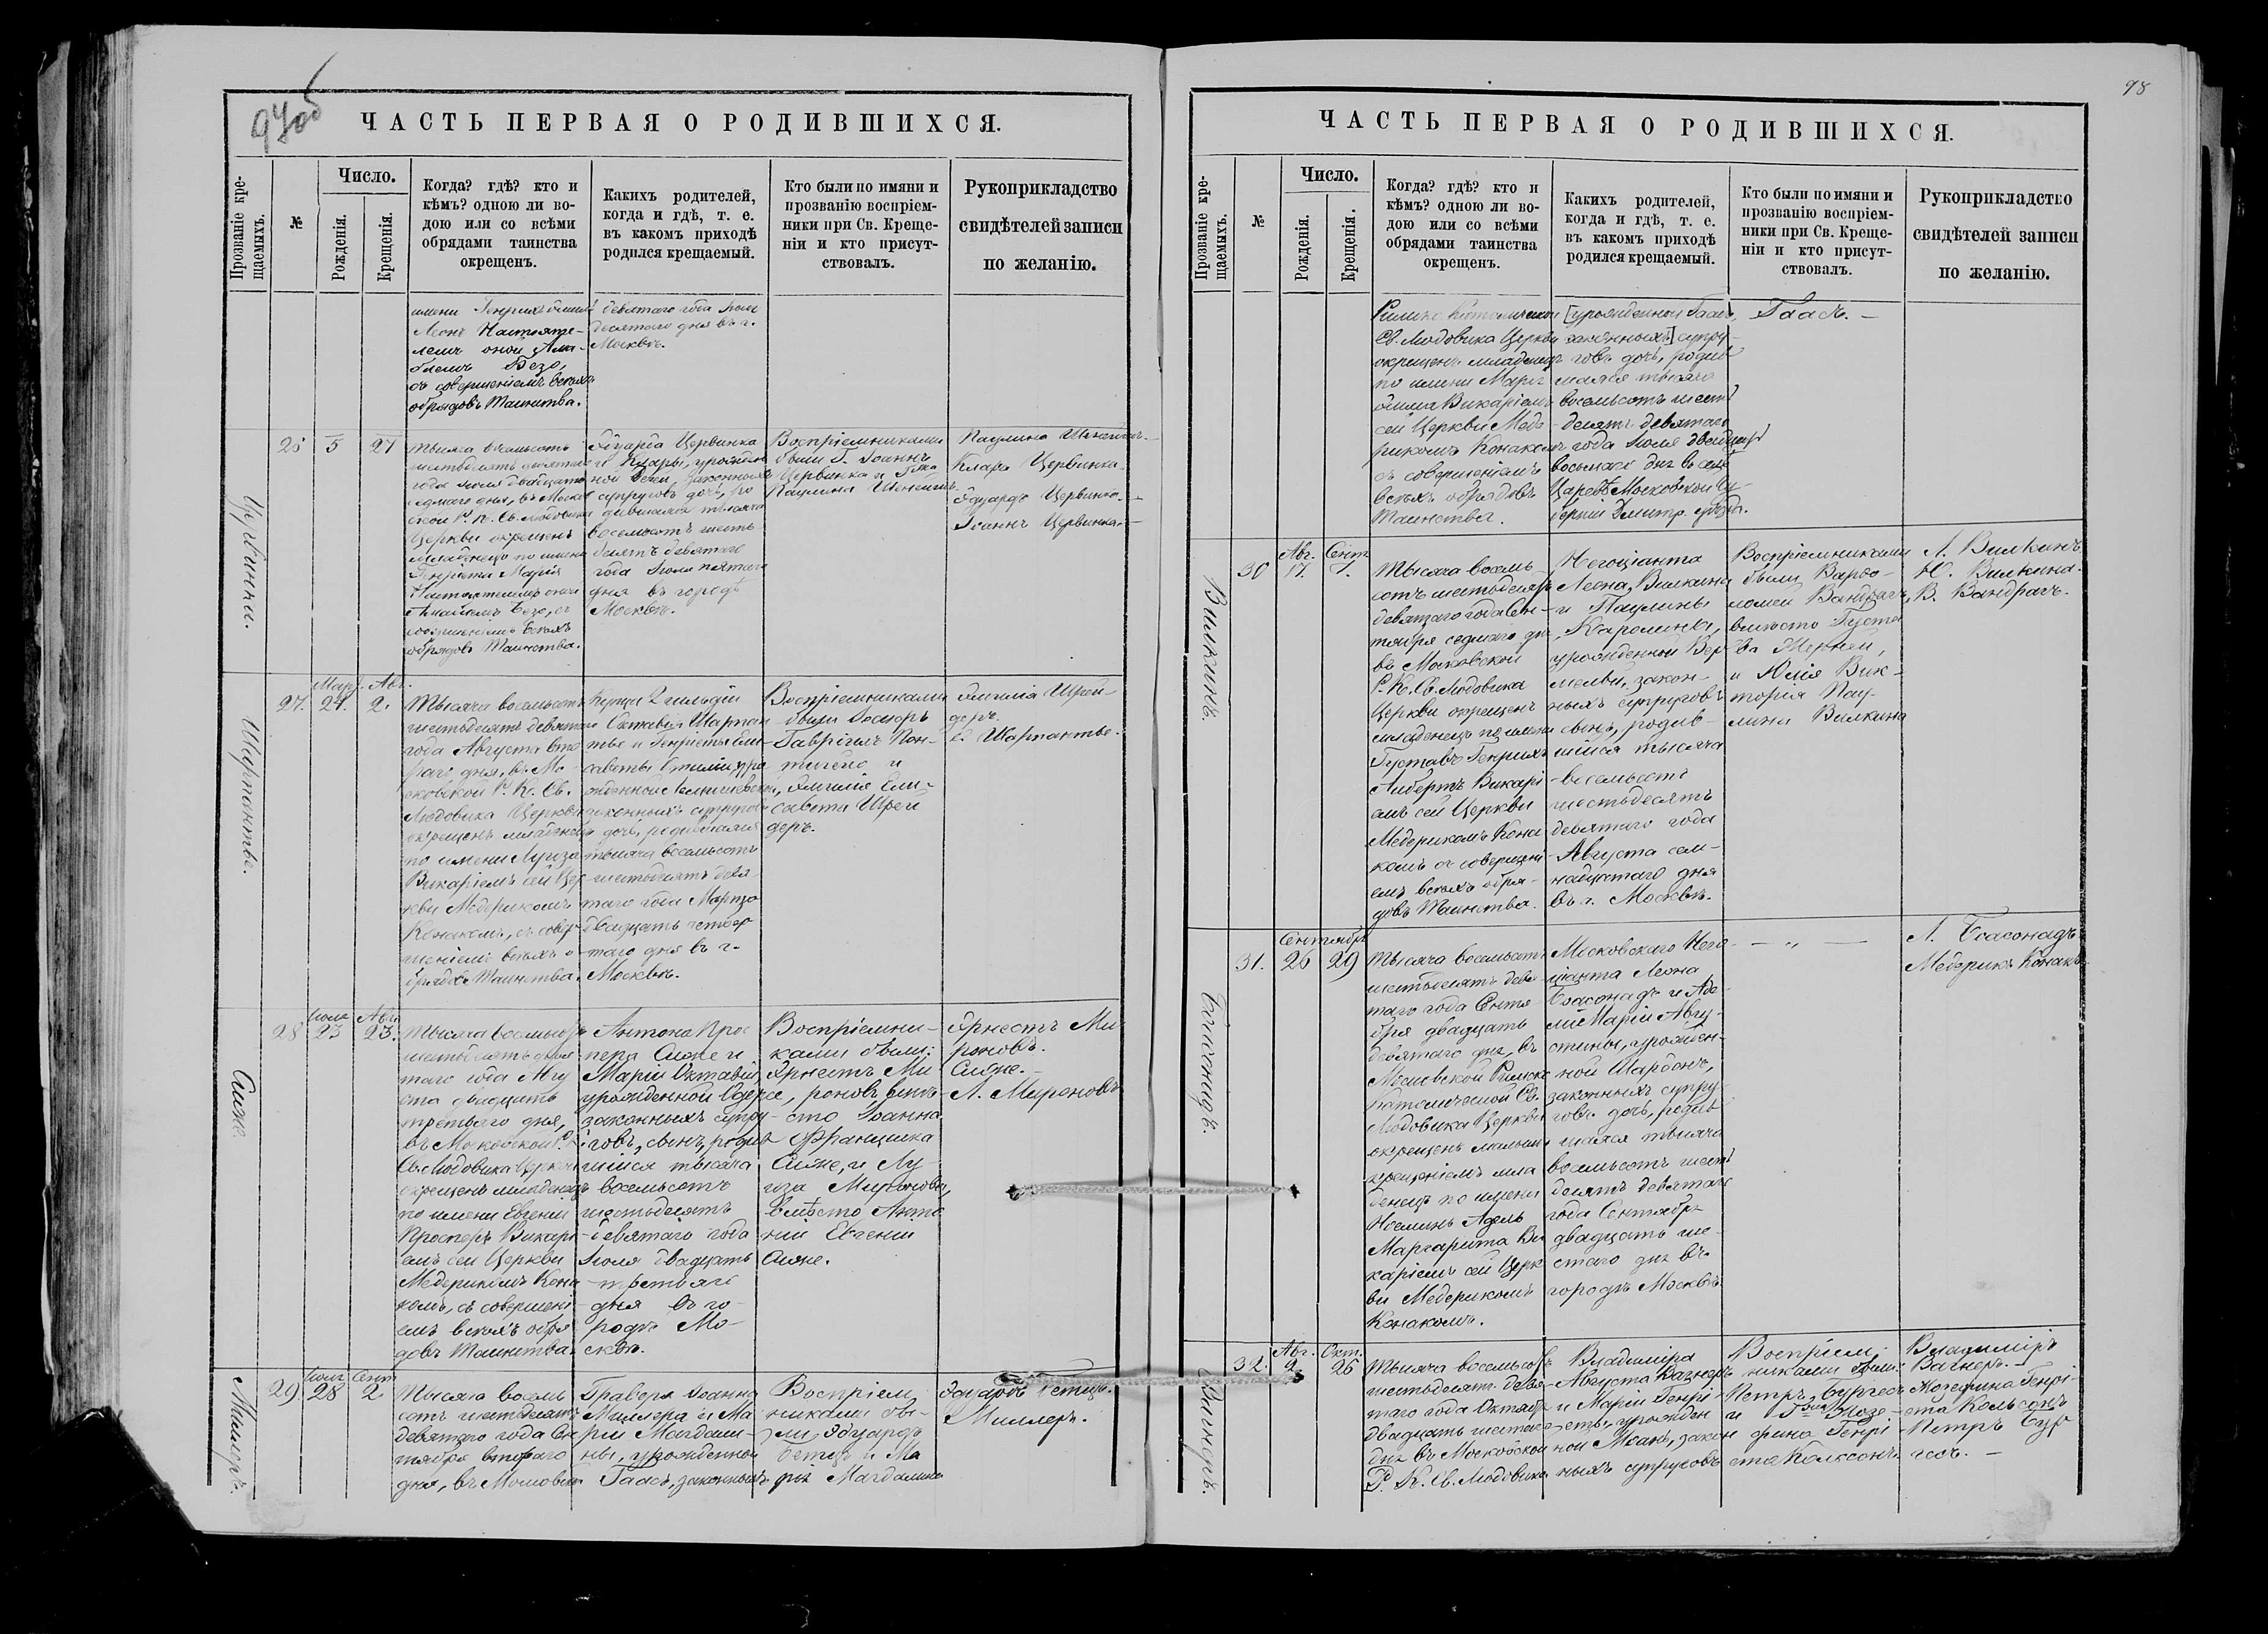 97об
ЧАСТЬ ПЕРВАЯ О РОДИВШИХСЯ.
Прозваніе кре-
щаемыхъ.
№
Число.
Рожденія.
Крещенія.
Когда? гдѣ? кто и
кѣмъ? одною ли во-
дою или со всѣми
обрядами таинства
окрещенъ.
Какихъ родителей,
когда и гдѣ, т. е.
въ какомъ приходѣ
родился крещаемый.
Кто были по имяни и
прозванію воспріем-
ники при Св. Креще-
ніи и кто присут-
ствовалъ.
Рукоприкладство
свидѣтелей записи
по желанію.
имени Генрихъ
Леонъ Настояте-
лемъ оной Ама-
блемъ Безо,
съ совершеніемъ всѣхъ
обрядовъ Таинства.
девятаго года Іюля
десятаго дня въ г.
Москвѣ.
5 27
Тысяча восемьсотъ
шестьдесятъ девятаго
года Іюля двадцать
седмаго дня, въ Москов
ской Р. К. Св. Людовика
Церкви окрещенъ
младенецъ по имени
Генріета Марія
Настоятелемъ оной
Амаблемъ Безо, съ
совершеніемъ всѣхъ
обрядовъ Таинства.
Эдуарда Червинка
и Клары, урожден
ной законныхъ
супруговъ дочь, ро
дившаяся тысяча
восемьсотъ шесть
десятъ девятаго
года Іюля пятаго
дня въ городѣ
Москвѣ.
Воспріемниками
были Г. Іоаннъ
Червинка и
Паулина
Паулина
Клара Червинка.
Эдуардъ Червинка.
Іоаннъ Червинка.
Шарпантье.
27.
Март. Авг.
24. 2.
Тысяча восемьсотъ
шестьдесятъ девятаго
года Августа вто
раго дня, въ Мо-
сковской Р. К. Св.
Людовика Церкви
окрещенъ младенецъ
по имени Луиза
Викаріемъ сей Цер-
кви Медерикомъ
Конакомъ, съ совер-
шеніемъ всѣхъ о-
брядовъ Таинства.
Купца 2 гильдіи
Октавія Шарпан
тье и Генріеты Ели-
саветы Эмиліи, уро
жденной
законныхъ супруговъ
дочь, родившаяся
тысяча восемьсотъ
шестьдесятъ девя-
таго года Марта
двадцать четвер
таго дня въ г.
Москвѣ.
Воспріемниками
были Докторъ
Гавріилъ Пон-
и
Эмилія Ели-
савета Шрей
деръ.
Эмилія Шрей-
деръ.
Шарпантье.
Сиже.
28
Іюля Авг.
23 23.
Тысяча восемьсотъ
шестьдесятъ девя
таго года Авгу
ста двадцать
третьяго дня,
въ Московской Р. К.
Св. Людовика Церкви
окрещенъ младенецъ
по имени Евгеній
Просперъ Викарі
емъ сей Церкви
Медерикомъ Кона
комъ, съ совершені
емъ всѣхъ обря
довъ Таинства.
Антона Прос
пера Сиже и
Маріи Октавіи,
урожденной
законныхъ супру-
говъ, сынъ, родив
шійся тысяча
восемьсотъ
шестьдесятъ
девятаго года
Іюля двадцать
третьяго
дня въ го-
родѣ Мо-
сквѣ.
Воспріемни-
ками были:
Эрнестъ Ми
роновъ, вмѣ-
сто Іоанна
Франциска
Сиже, и Лу-
иза Миронова,
вмѣсто Анто
ніи Евгеніи
Сиже.
Эрнестъ Ми-
роновъ.
Сиже.
Л. Мироновъ
Миллеръ.
29.
Іюля Сент
28 2.
Тысяча восемь
сотъ шестьдесятъ
девятаго года Сен
тября втораго
дня, въ Московской
Гравера Іоанна
Миллера и Ма
ріи Магдали-
ны, урожденной
Гаасъ, законныхъ
Воспріем
никами бы-
ли, Эдуардъ
Бетце и Ма
рія Магдалина
Эдуардъ Бетце.
Миллеръ.
98
ЧАСТЬ ПЕРВАЯ О РОДИВШИХСЯ.
Прозваніе кре-
щаемыхъ.
№
Число.
Рожденія.
Крещенія.
Когда? гдѣ? кто и
кѣмъ? одною ли во-
дою или со всѣми
обрядами таинства
окрещенъ.
Какихъ родителей,
когда и гдѣ, т. е.
въ какомъ приходѣ
родился крещаемый.
Кто были по имяни и
прозванію воспріем-
ники при Св. Креще-
ніи и кто присут-
ствовалъ.
Рукоприкладство
свидѣтелей записи
по желанію.
Римско Католической
Св. Людовика Церкви
окрещенъ младенецъ
по имени Марія
Эмма Викаріемъ
сей Церкви Меде-
рикомъ Конакомъ
съ совершеніемъ
всѣхъ обрядовъ
Таинства.
[урожденной Гаасъ,
законныхъ] супру-
говъ дочь, родив
шаяся тысяча
восемьсотъ шесть
десятъ девятаго
года Іюля двадцать
восьмаго дня въ селѣ
Царевѣ Московской Гу-
берніи Дмитр. уѣзда.
Гаасъ. —
Вилкинъ.
30
Авг. Сент
17. 7.
Тысяча восемь-
сотъ шестьдесятъ
девятаго года Сен-
тября седмаго дня,
въ Московской
Р. К. Св. Людовика
Церкви окрещенъ
младенецъ по имени
Густавъ Генрихъ
Албертъ Викарі-
емъ сей Церкви
Медерикомъ Кона
комъ съ совершені-
емъ всѣхъ обря-
довъ Таинства.
Негоціанта
Леона, Вилкина
и Паулины
Каролины,
урожденной Вер-
мельи, закон-
ныхъ супруговъ
сынъ, родив-
шійся тысяча
восемьсотъ
шестьдесятъ
девятаго года
Августа сем-
надцатаго дня
въ г. Москвѣ.
Воспріемниками
были Варфо-
ломей Вандрачъ,
вмѣсто Густа
ва
и Юлія Вик-
торія Пау-
лина Вилкина
Л. Вилкинъ
Ю. Вилкина.
В. Вандрачъ.
31.
Сентября
26 29
Тысяча восемьсотъ
шестьдесятъ девя
таго года Сентя
бря двадцать
девятаго дня, въ
Московской Римско
Католической Св.
Людовика Церкви
окрещенъ малымъ
крещеніемъ мла
денецъ по имени
Адель
Маргарита Ви
каріемъ сей Церк
ви Медерикомъ
Конакомъ.
Московскаго Него-
ціанта Леона
и Аде-
ли Маріи Авгу-
стины, урожден-
ной Шарбонъ,
законныхъ супру-
говъ дочь, родив
шаяся тысяча
восемьсотъ шесть
десятъ девятаго
года Сентября
двадцать ше-
стаго дня въ
городѣ Москвѣ.
— „ —
Медерикъ Конакъ
Вагнеръ.
32.
Авг. Окт.
2. 26
Тысяча восемьсотъ
шестьдесятъ девя-
таго года Октября
двадцать шестаго
дня въ Московской
Р. К. Св. Людовика
Владиміра
Августа Вагнеръ
и Маріи Генрі-
еты, урожден
ной Моанъ, закон
ныхъ супруговъ
Воспріем-
никами были:
Петръ Бургесъ
и Жозе-
фина Генрі-
ета Колссонъ
Владиміръ
Вагнеръ. —
Жозефина Генрі-
ета Колссонъ
Петръ Бур
гесъ. —